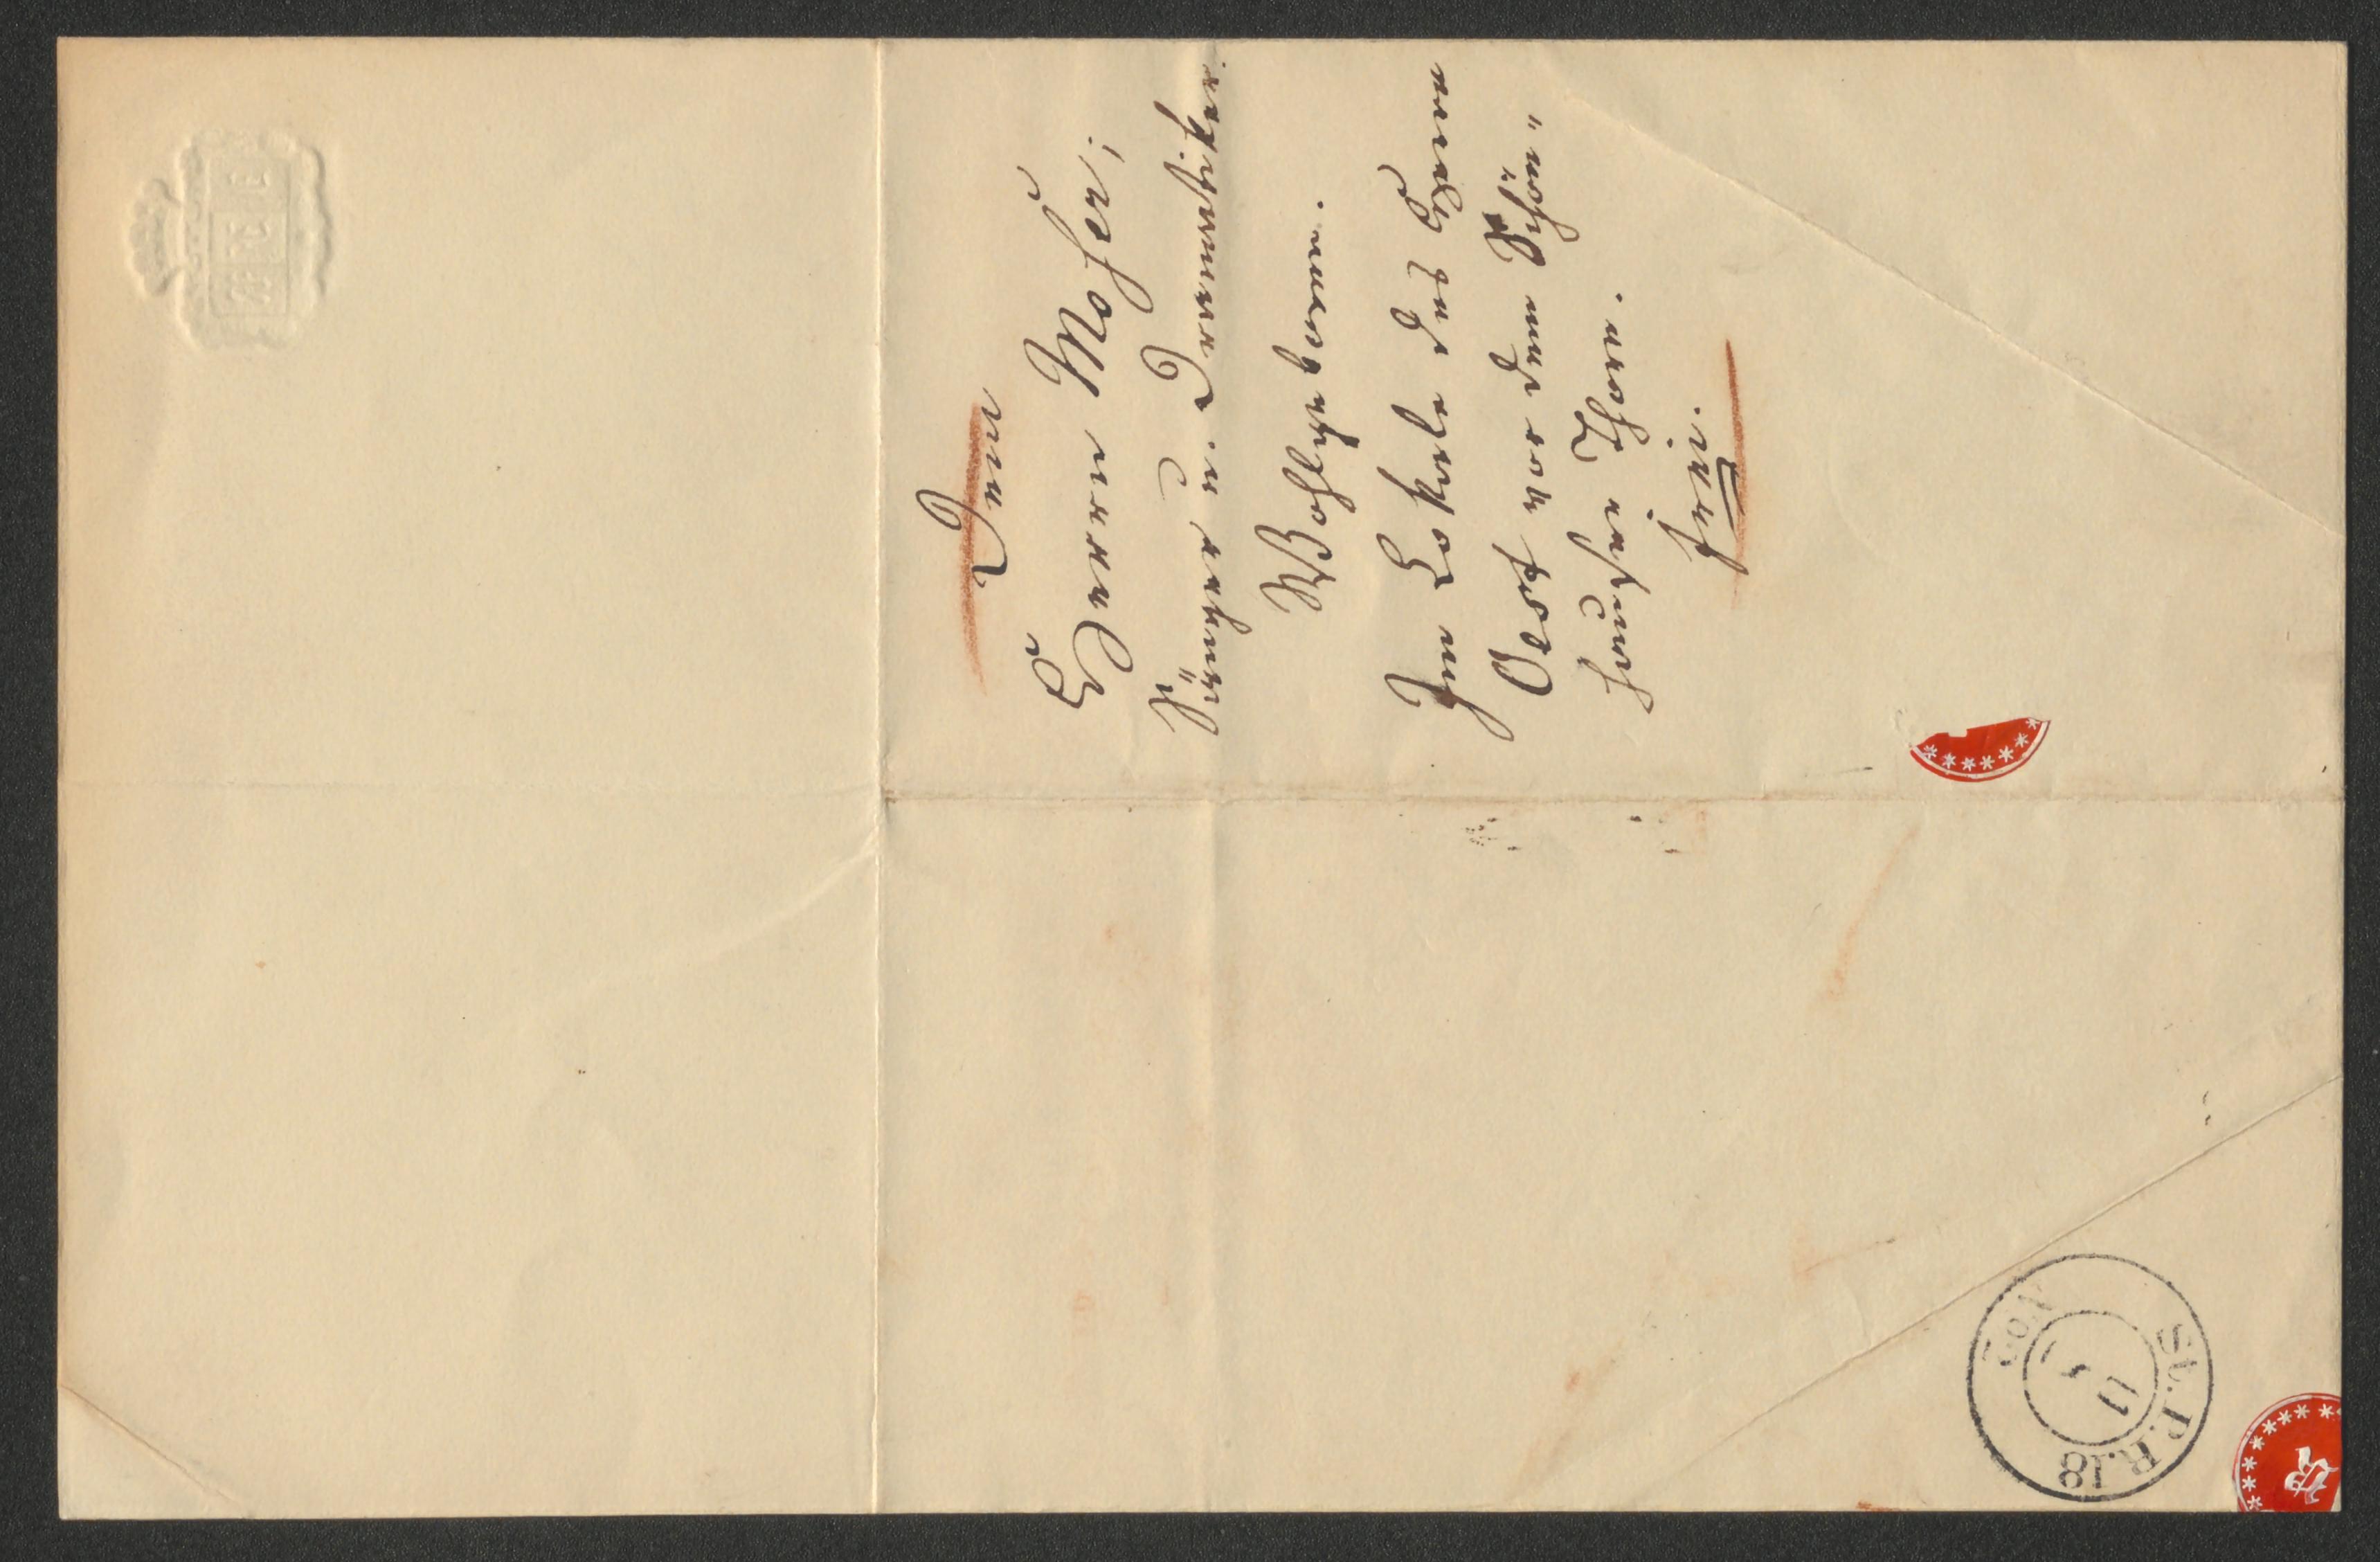 Dem
Herrn Moser,
Sänger u. Dramatiker
Wohlgeboren.
Im Lokale des Herrn
Oert vor dem Schön-
hauser Thor.
frei.
St. P. R. 18
11
5
Vo